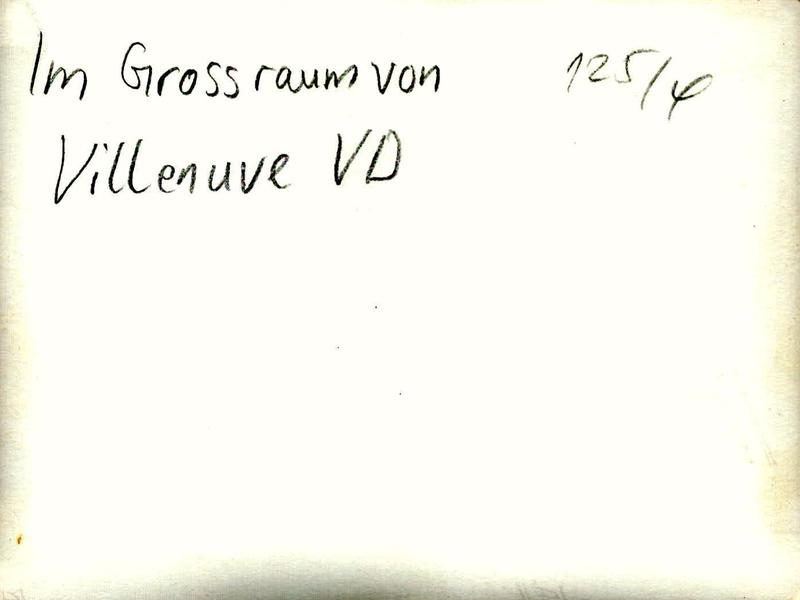 Im Grossraum von 125/φ
Villenuve VD